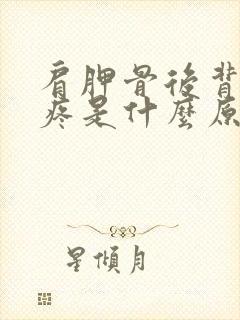 肩胛骨後背
疼是什麼原
星傾月